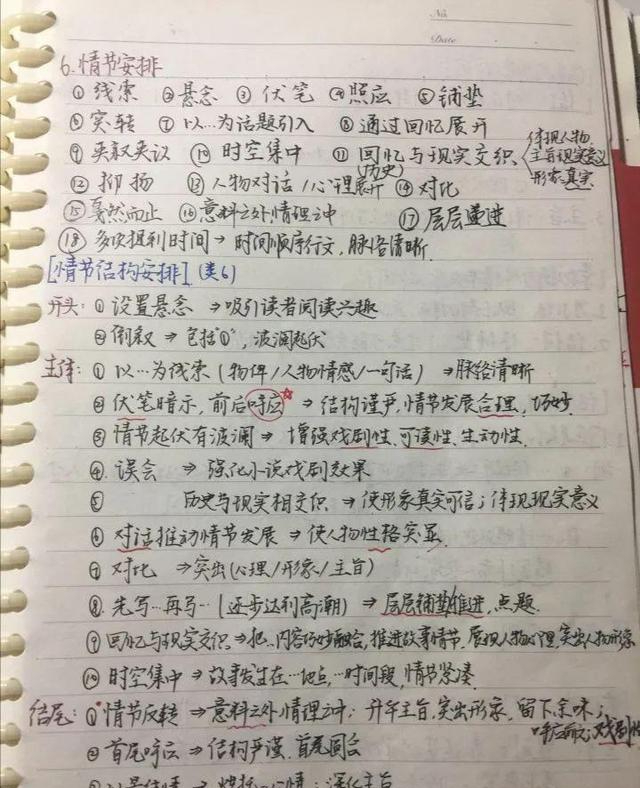 No.
Date
6.情节安排
①线索 ②悬念 ③伏笔 ④照应 ⑤铺垫
⑥突转 ⑦以…为话题引入 ⑧通过回忆展开
⑨夹叙夹议 ⑩时空集中 ⑪回忆与现实交织(历史) 体现人物 主旨现实意义 形象真实
⑫抑扬 ⑬人物对话/心理展开 ⑭对比
⑮戛然而止 ⑯意料之外情理之中 ⑰层层递进
⑱多次提到时间→时间顺序行文,脉络清晰.
[情节结构安排](类6)
开头:①设置悬念→吸引读者阅读兴趣
②倒叙→包括"①",波澜起伏
主体:①以…为线索(物件/人物情感/一句话)→脉络清晰
②伏笔暗示,前后呼应☆→结构谨严,情节发展合理,巧妙
③情节起伏有波澜→增强戏剧性.可读性.生动性.
④误会→强化小说戏剧效果
⑤历史与现实相交织→使形象真实可信;体现现实意义
⑥对话推动情节发展→使人物性格突显.
⑦对比→突出(心理/形象/主旨)
⑧先写…再写…(逐步达到高潮)→层层铺垫推进,点题.
⑨回忆与现实交织→把..内容巧妙融合,推进故事情节,展现人物心理,突出人物形象
⑩时空集中→故事发生在…地点,…时间段,情节紧凑.
结尾:①情节反转→意料之外情理之中;升华主旨,突出形象,留下余味;
呼应前文;戏剧性
②首尾呼应→结构严谨.首尾圆合